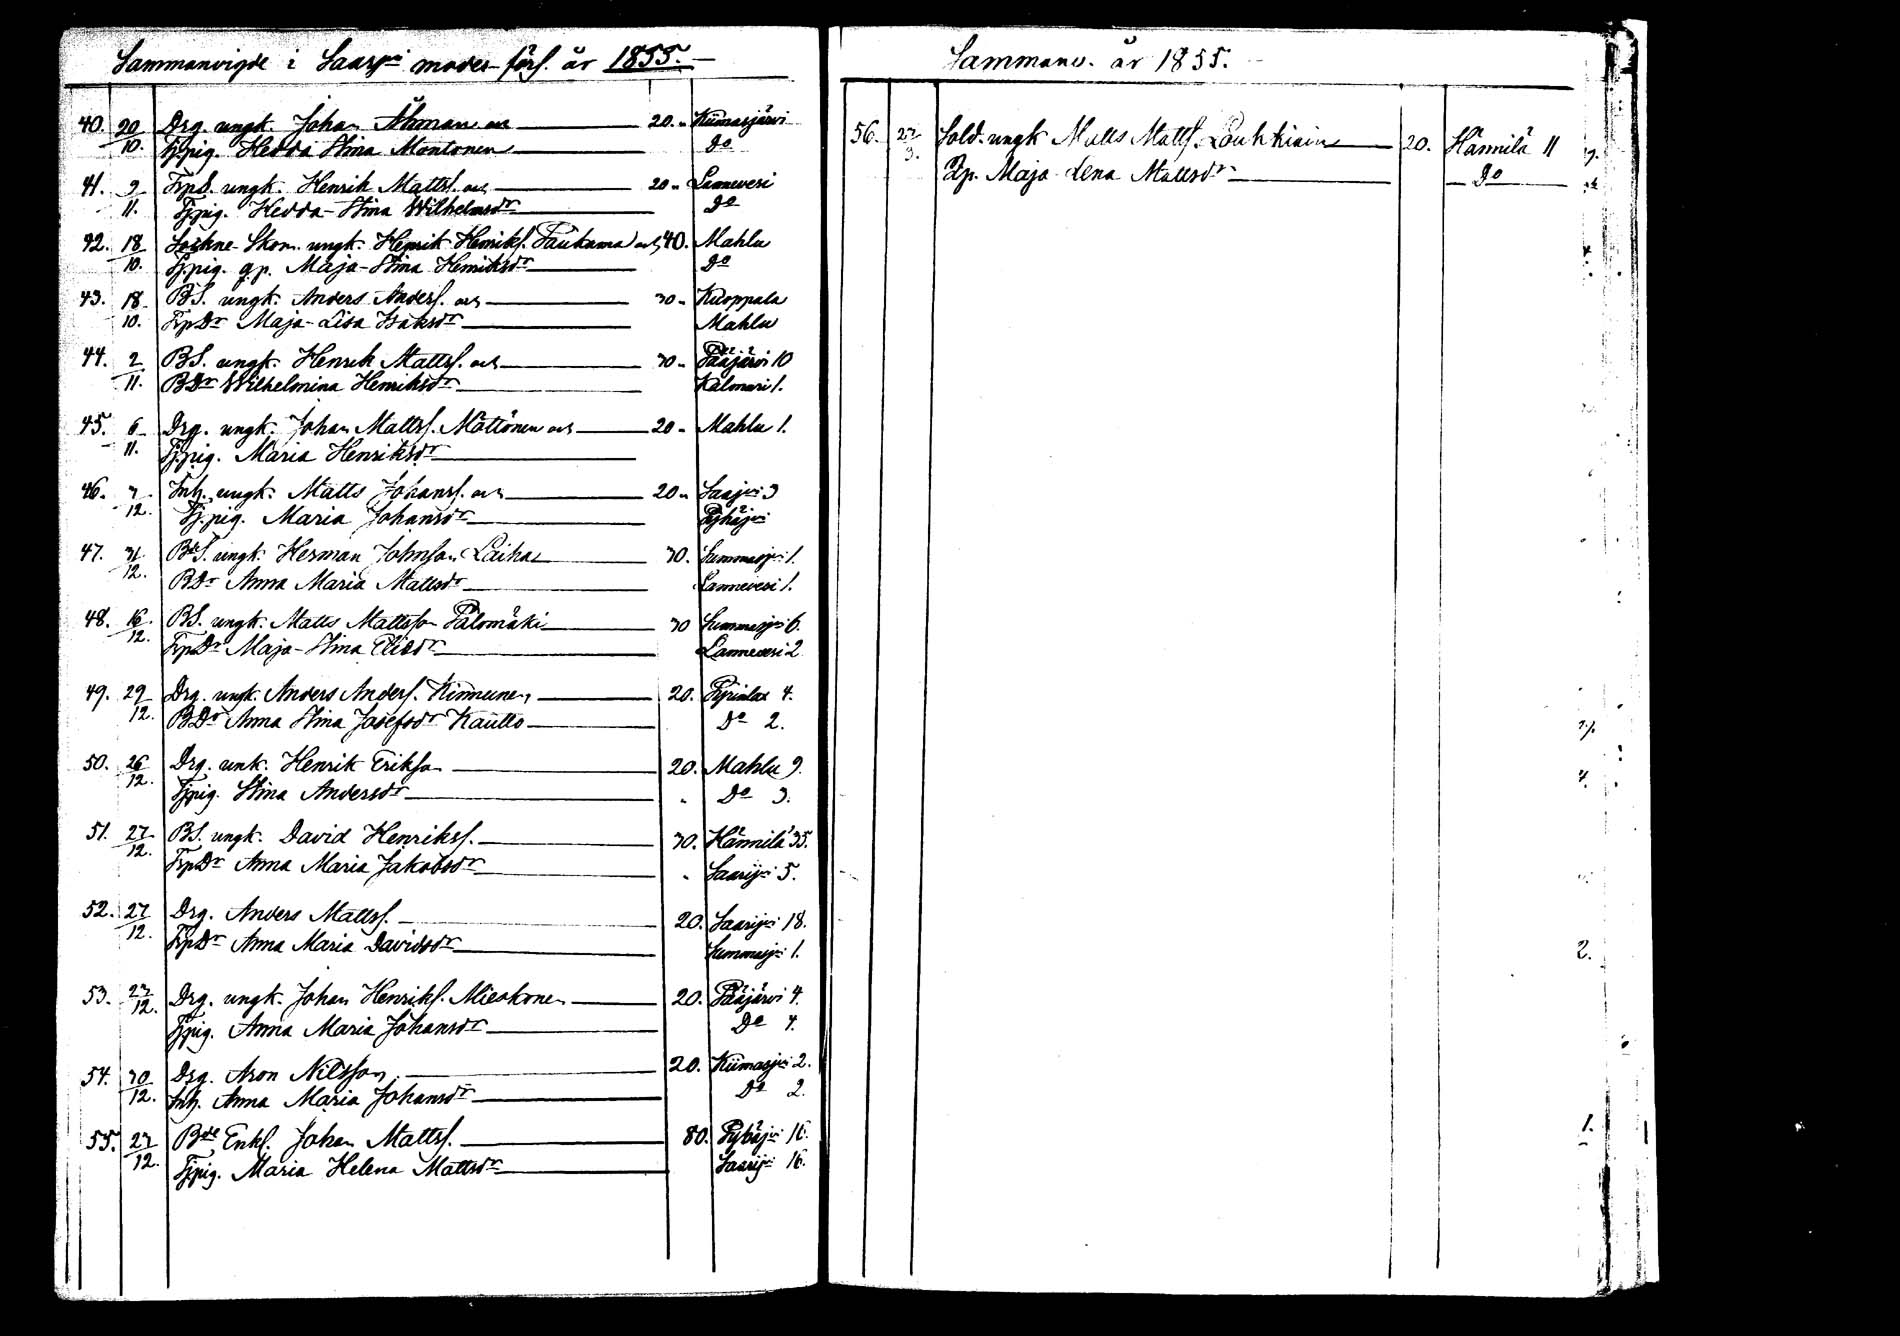 Sammanvigde i Saarjvi moder förs. år 1855.
40. 20/10. Drg. ungk. Johan Åhman och 20. Kiimasjärvi
Tjpig. Hedda Stina Mantonen Do
41. 9/11. TrpS. ungk. Henrik Mattss. och 20 Lannevesi
Tjpig. Hedda-Stina Wilhelmsdr Do
42. 18/10. Sockne-Skom. ungk. Henrik Henrikss. Taukama och 40. Mahlu
Tjpig. qp. Maja-Stina Henriksdr Do
43. 18/10. BS. ungk. Anders Anderss. och 30 Kuoppala
TrpDr Maja-Lisa Isaksdr Mahlu
44. 2/11. BS. ungk. Henrik Mattss. och 30 Pääjärvi 10
BDr Wilhelmina Henriksdr Kalmari 1.
45. 6/11. Drg. ungk. Johan Mattss. Möttönen och 20 Mahlu 1.
Tjpig. Maria Henriksdr
46. 3/12. Inh. ungk. Matts Johanss. och 20 Saajvi 3
Tj.pig. Maria Johansdr Pyhäjvi
47. 31/12. BdS. ungk. Herman Johnsson Laiha 30. Summasjvi 1.
BDr Anna Maria Mattsdr Lannevesi 1.
48. 16/12. BS. ungk. Matts Mattsson Palomäki 30 Summasjvi 6.
TrpDr Maja-Stina Eliedr Lannevesi 2
49. 29/12. Drg. ungk. Anders Anderss. Kinnunen 20. Pyrinlax 4.
BDr Anna Stina Josefsdr Kautto Do 2.
50. 26/12. Drg. unk. Henrik Eriksson 20. Mahlu 9.
Tjpig. Stina Andersdr Do 3.
51. 27/12. BS. ungk. David Henrikss. 30. Hännilä 35.
TrpDr Anna Maria Jakobsdr Saarijvi 5.
52. 27/12. Drg. Anders Mattss. 20. Saarijvi 18.
TrpDr Anna Maria Davidsdr Summasjvi 1.
53. 23/12. Drg. ungk. Johan Henrikss. Mieskonen 20. Pääjärvi 4.
Tjpig. Anna Maria Johansdr Do 4.
54. 30/12. Drg. Aron Nilsson 20. Kiimasjvi 2.
Inh. Anna Maria Johansdr Do 2.
55. 27/12. Bde Enkl. Johan Mattss. 80. Pyhäjvi 16.
Tjpig. Maria Helena Mattsdr Saarijvi 16.
Sammanv. år 1855.
56. Sold. ungk Matts Mattss. Louhkiain 20. Hännilä 11
Maja Lena Mattsdr Do